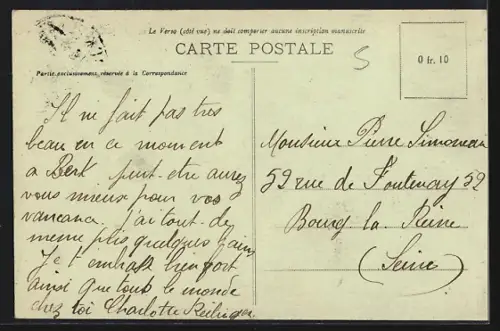 Le Verso (côté vue) ne doit comporter aucune inscription manuscrite
CARTE POSTALE
5
0 fr. 10
Partie exclusivement réservée à la Correspondance
Il ne fait pas très
beau en ce moment
a Berk peut-etre aurez
vous mieux pour vos
vancance. j'ai tout-de
meme plis quelques bains
Je t'embrasse bien fort
ainsi que tout le monde
chez toi Charlotte
Monsieur Pierre Simoneau
52 rue de Fontenay 52
Bourg la Reine
(Seine)